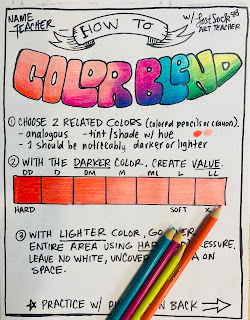 NAME
TEACHER
HOW TO
w/ Lost Sock
ART TEACHER
COLOR BLEND
① CHOOSE 2 RELATED COLORS (colored pencils or crayon).
- analogous - tint/shade w/ hue
- 1 should be noticeably darker or lighter
② WITH THE DARKER COLOR, CREATE VALUE.
DD D DM M ML L LL
HARD SOFT
③ WITH LIGHTER COLOR, GO
ENTIRE AREA USING PRESSURE.
LEAVE NO WHITE, UNCOVERED ON
SPACE.
☆ PRACTICE w/ ON BACK →